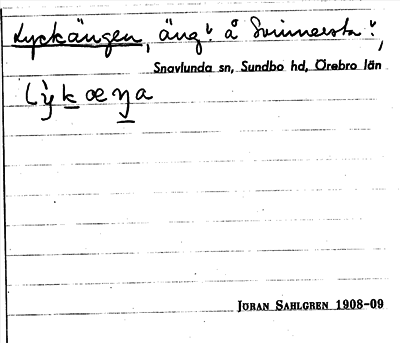 Lyckängen, äng. å Svinnersta.,
Snavlunda sn, Sundbo hd, Örebro län
lỳkæŋa
JÖRAN SAHLGREN 1908-09